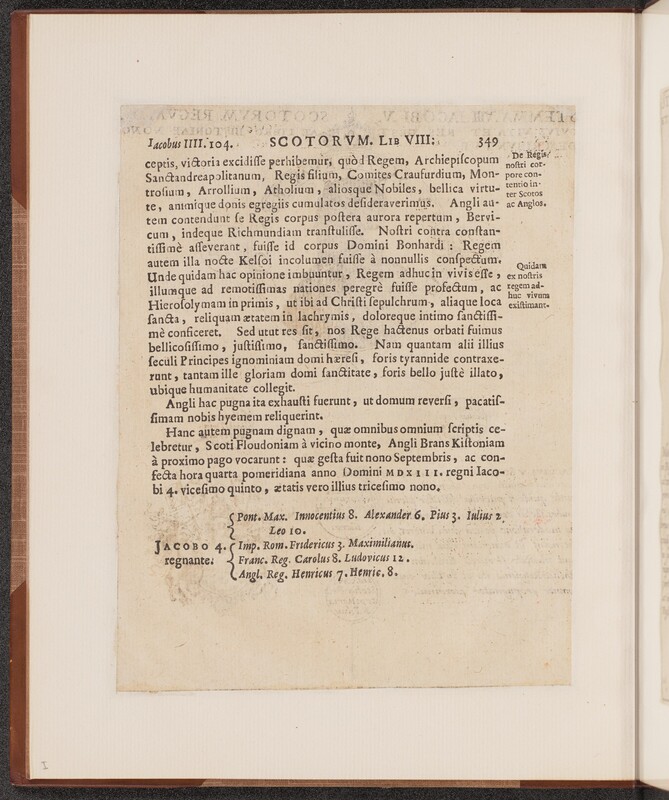 Iacobus IIII. 104.
SCOTORVM. LIB VIII.
349
ceptis, victoria excidisse perhibemur, quòd Regem, Archiepiscopum
Sanctandreapolitanum, Regis filium, Comites Craufurdium, Mon-
trosium, Arrollium, Atholium, aliosque Nobiles, bellica virtu-
te, animique donis egregiis cumulatos desideraverimus. Angli au-
tem contendunt se Regis corpus postera aurora repertum, Bervi-
cum, indeque Richmundiam transtulisse. Nostri contra constan-
tissimè asseverant, fuisse id corpus Domini Bonhardi: Regem
autem illa nocte Kelsoi incolumen fuisse à nonnullis conspectum.
Unde quidam hac opinione imbuuntur, Regem adhuc in vivis esse,
illumque ad remotissimas nationes peregrè fuisse profectum, ac
Hierosolymam in primis, ut ibi ad Christi sepulchrum, aliaque loca
sancta, reliquam ætatem in lachrymis, doloreque intimo sanctissi-
mè conficeret. Sed utut res sit, nos Rege hactenus orbati fuimus
bellicosissimo, justissimo, sanctissimo. Nam quantam alii illius
seculi Principes ignominiam domi hæresi, foris tyrannide contraxe-
runt, tantam ille gloriam domi sanctitate, foris bello justè illato,
ubique humanitate collegit.
Angli hac pugna ita exhausti fuerunt, ut domum reversi, pacatis-
simam nobis hyemem reliquerint.
Hanc autem pugnam dignam, quæ omnibus omnium scriptis ce-
lebretur, Scoti Floudoniam à vicino monte, Angli Brans Kistoniam
à proximo pago vocarunt: quæ gesta fuit nono Septembris, ac con-
fecta hora quarta pomeridiana anno Domini MDXIII. regni Iaco-
bi 4. vicesimo quinto, ætatis vero illius tricesimo nono.
De Regis
nostri cor-
pore con-
tentio in-
ter Scotos
ac Anglos.
Quidam
ex nostris
regem ad-
huc vivum
existimant.
JACOBO 4.
regnante.
Pont. Max. Innocentius 8. Alexander 6. Pius 3. Iulius 2.
Leo 10.
Imp. Rom. Fridericus 3. Maximilianus.
Franc. Reg. Carolus 8. Ludovicus 12.
Angl. Reg. Henricus 7. Henric. 8.